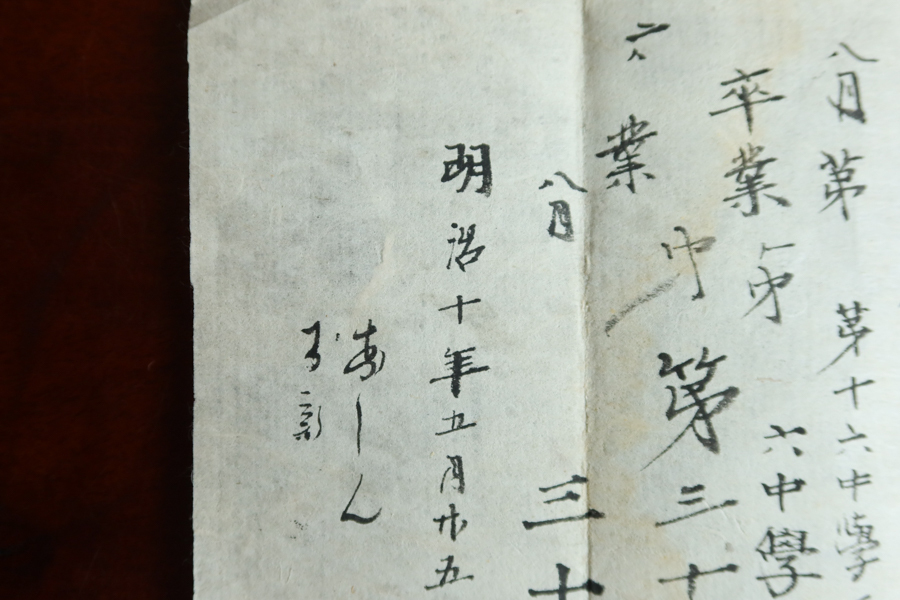 八月第 第十六中學
卒業第 六中學
中 第三十
六 業
八月 三十
明治十年五月廿五